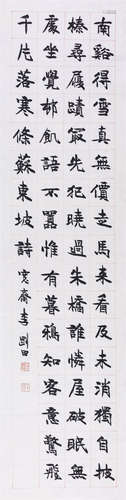 南谿得雪真無價走馬來看及未消獨自披
榛尋履蹟最先犯曉過朱橋誰憐屋破眠無
處坐覺邨飢語不囂惟有暮鴉知客意驚飛
千片落寒條蘇東坡詩 寬齋李剛田